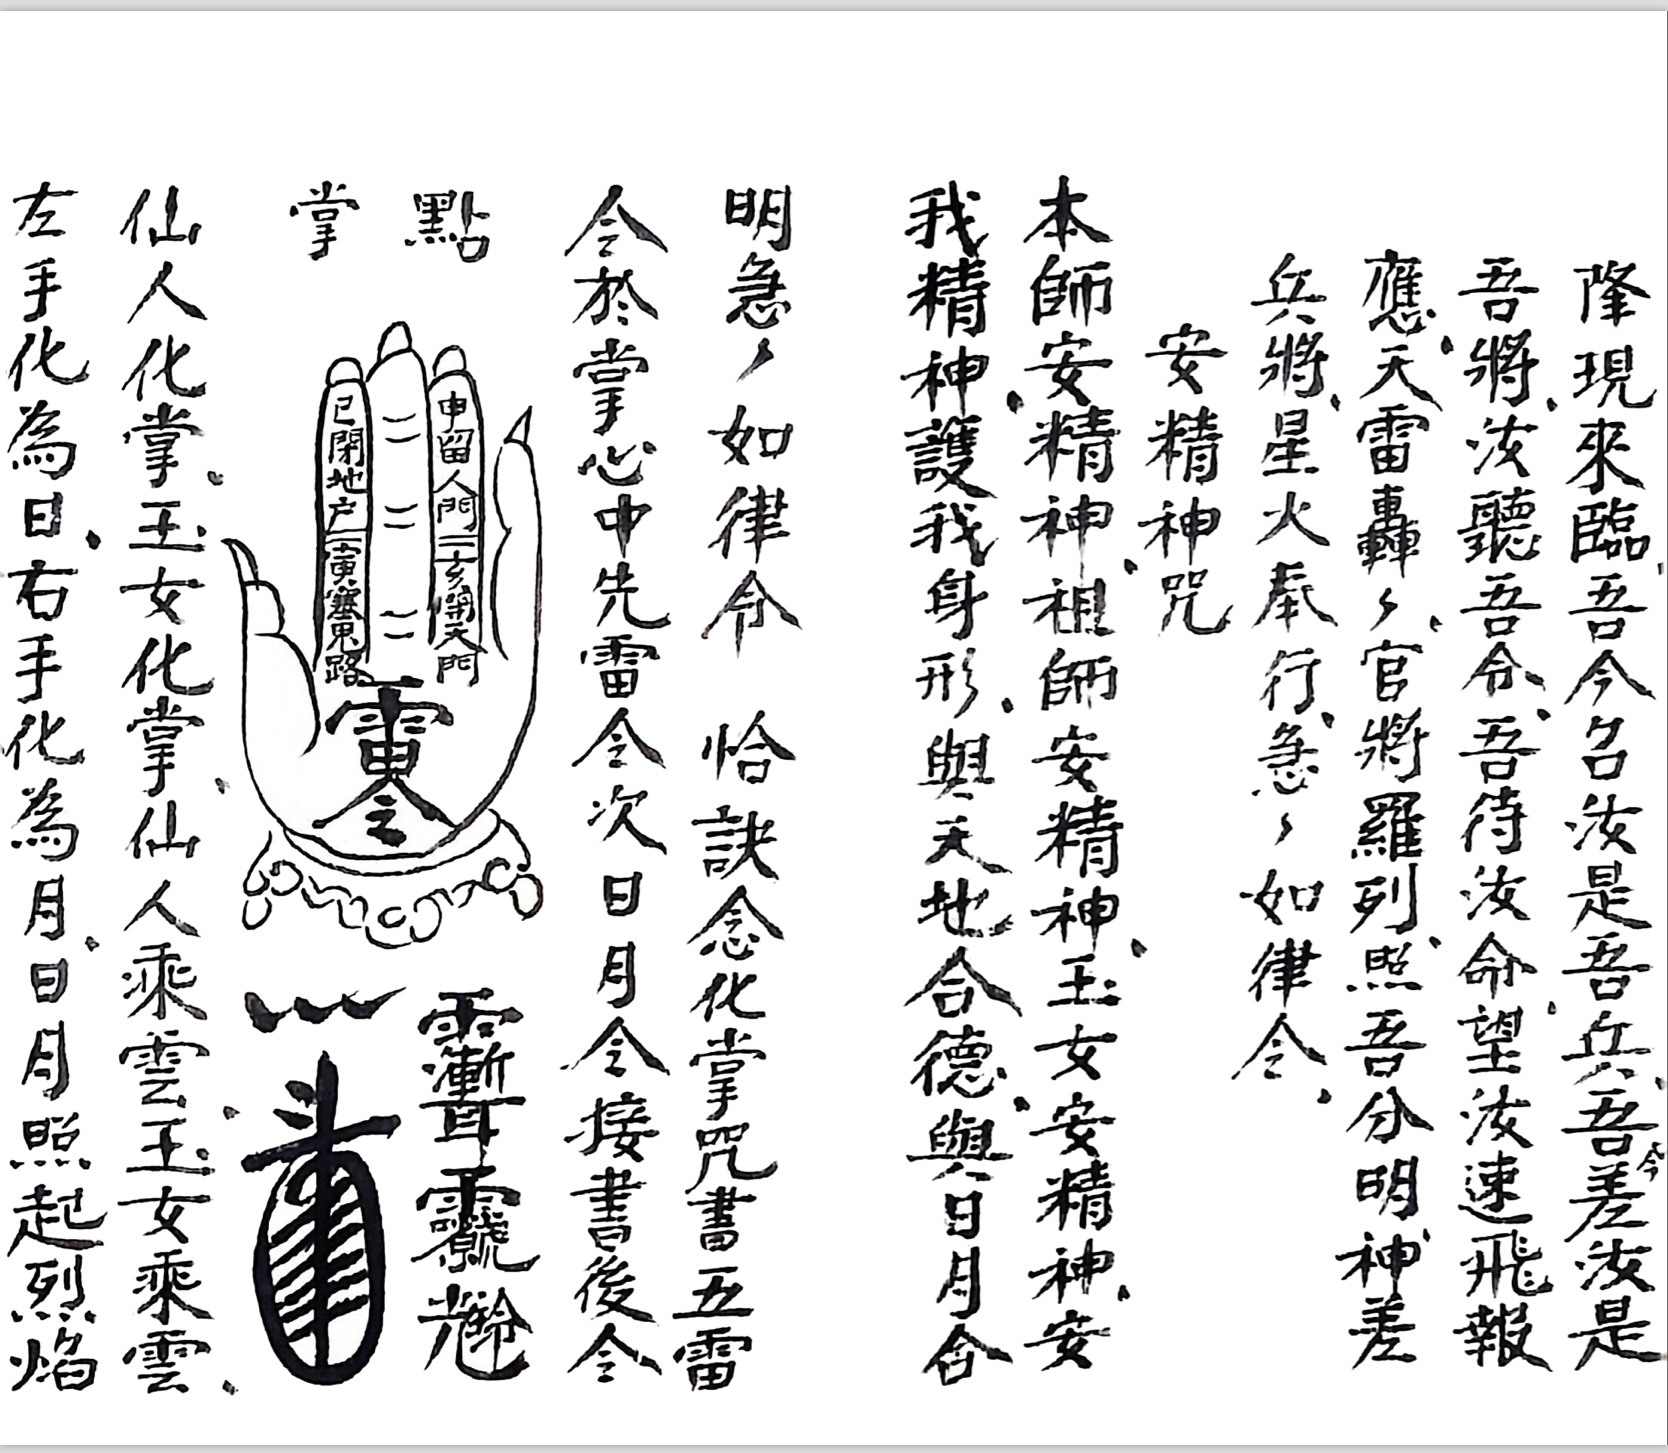 隆現來臨吾今名汝是吾兵吾今差汝是
吾將汝聽吾令吾待汝命望汝速飛報
應天雷轟々官將羅列照吾分明神差
兵將星火奉行急々如律令
安精神咒
本師安精神祖師安精神玉女安精神安
我精神護我身形與天地合德與日月合
明急々如律令 恰訣念化掌咒書五雷
令於掌心中先雷令次日月令接書後令
點
掌
申留人門一亥開天門
巳閉地户一寅塞鬼路
雷令
仙人化掌玉女化掌仙人乘雲玉女乘雲
左手化為日右手化為月日月照起烈焰